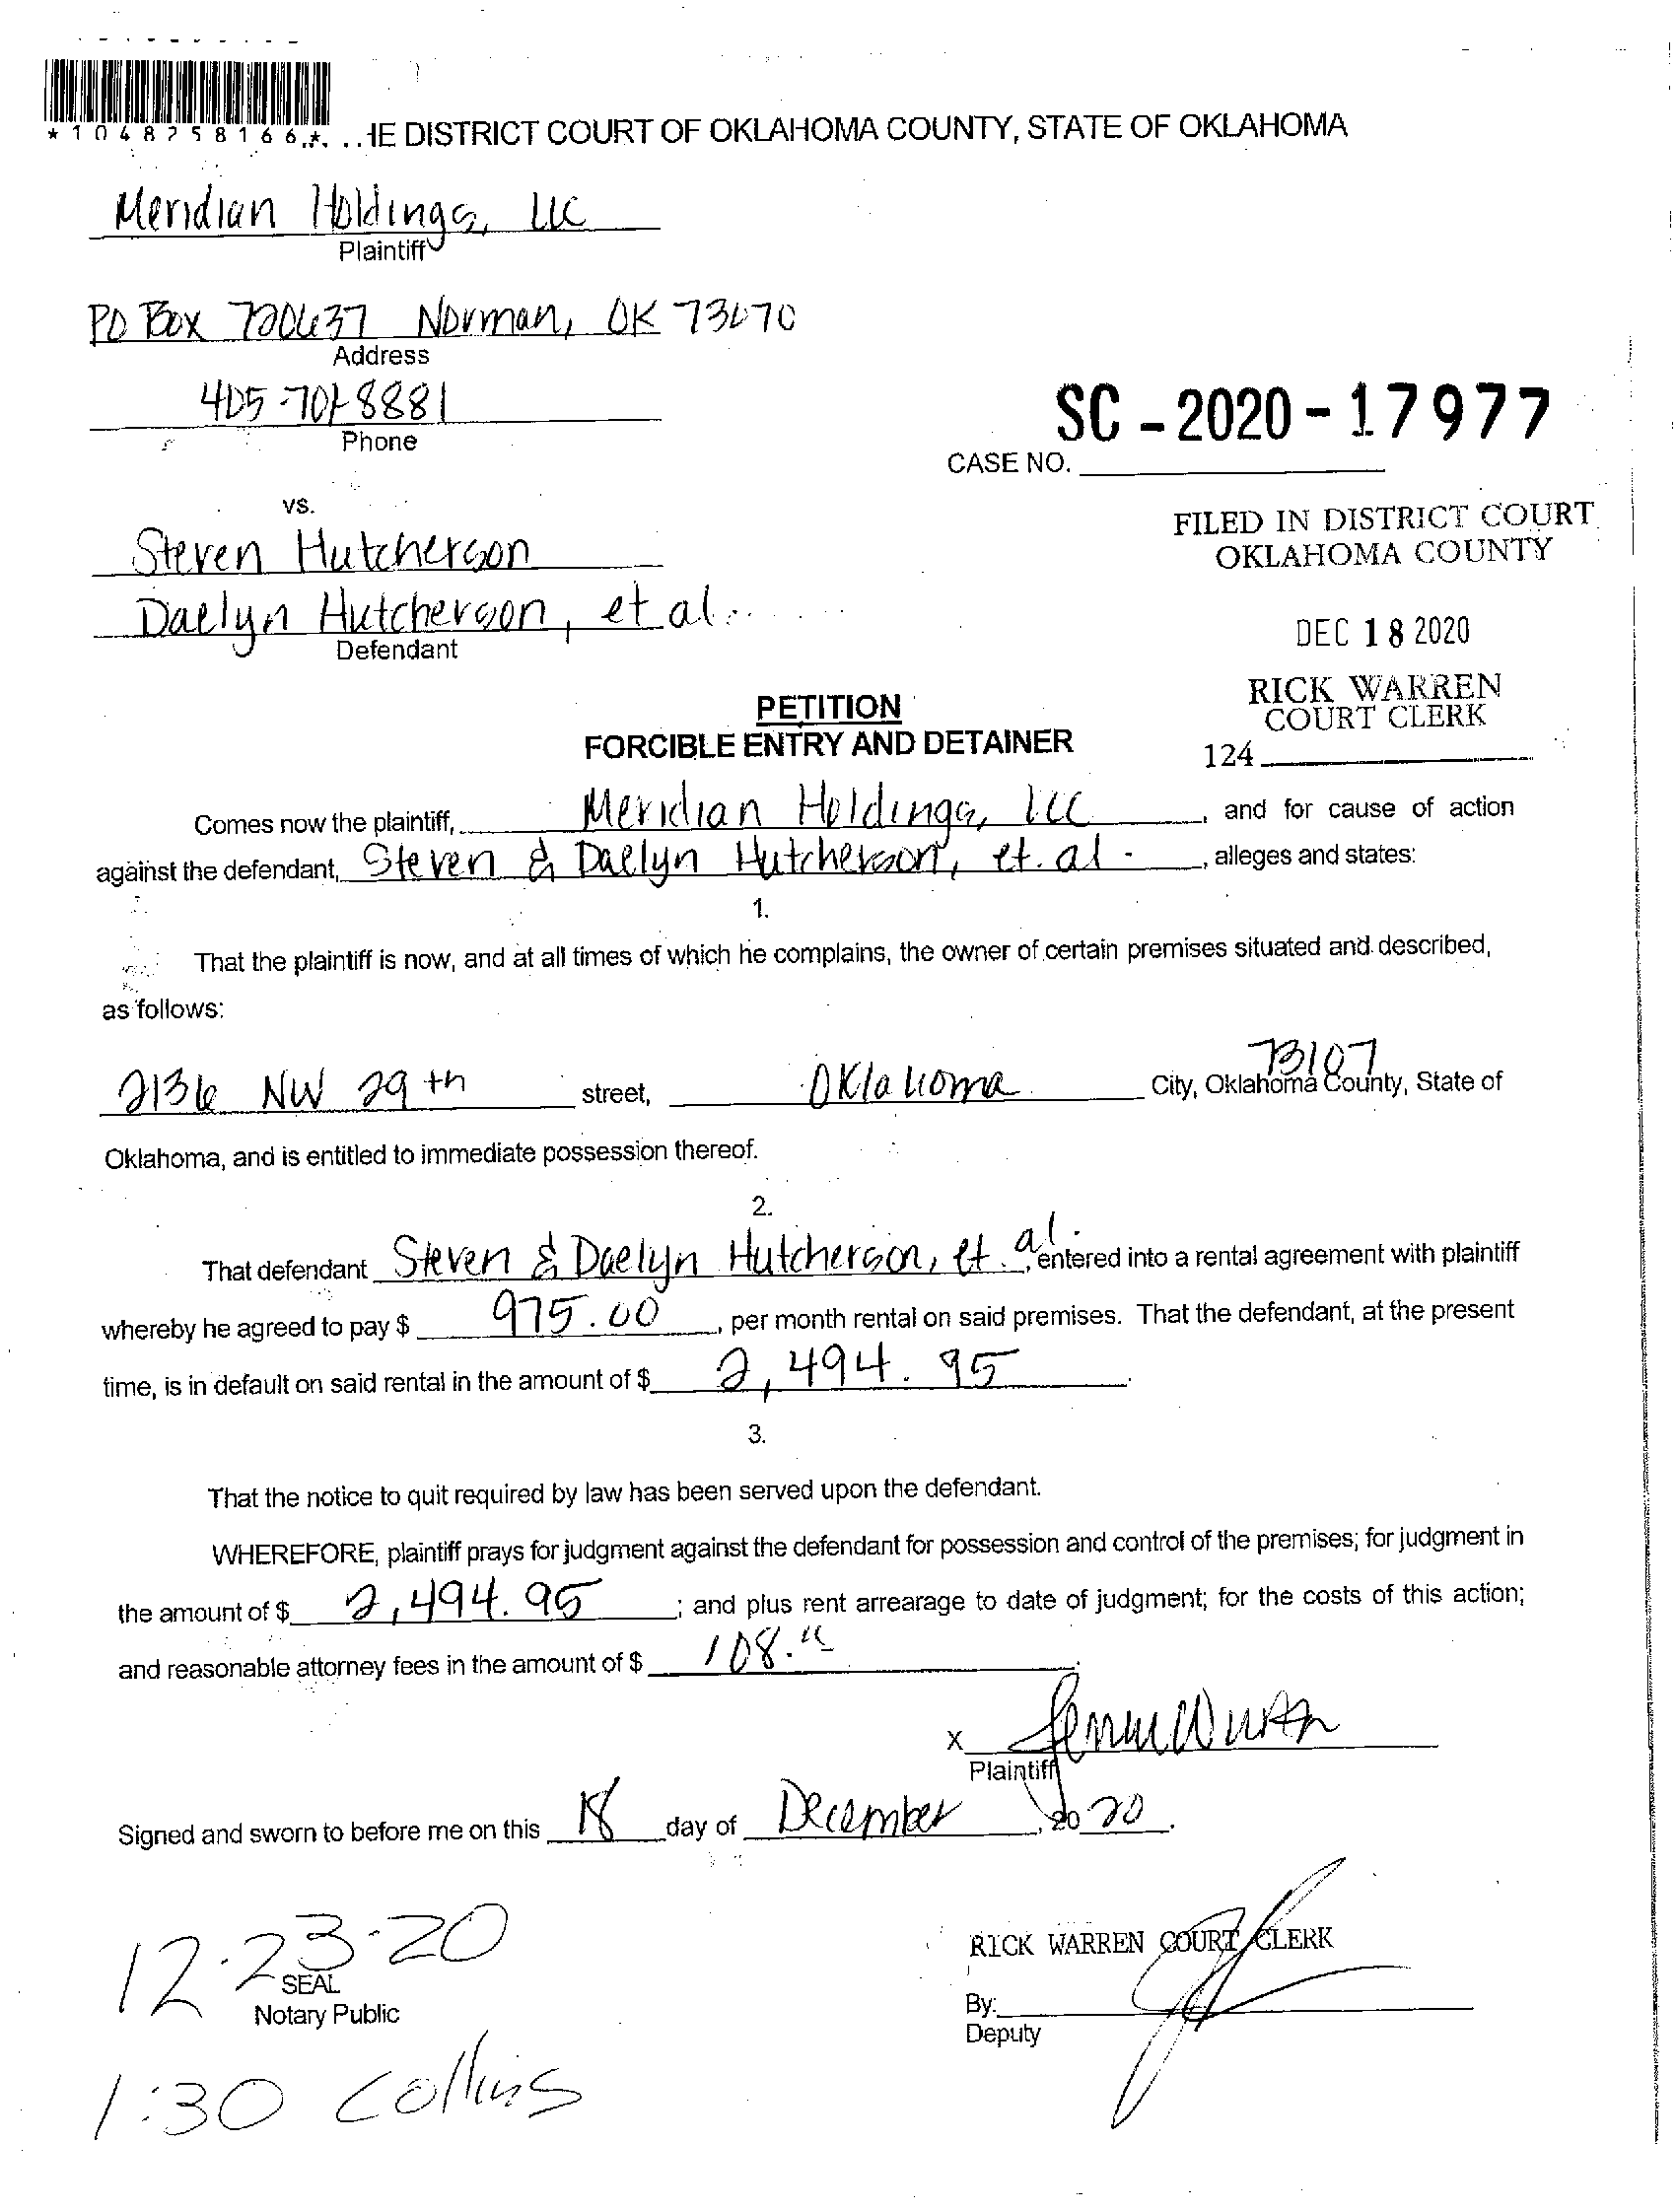 *1048258166*
HE DISTRICT COURT OF OKLAHOMA COUNTY, STATE OF OKLAHOMA
Meridian Holdings, LLC
Plaintiff
PO Box 720637 Norman, OK 73070
Address
405-701-8881
Phone
SC-2020-17977
CASE NO.
vs.
FILED IN DISTRICT COURT
OKLAHOMA COUNTY
Steven Hutcherson
Daelyn Hutcherson, et al.
Defendant
DEC 18 2020
RICK WARREN
COURT CLERK
124
PETITION
FORCIBLE ENTRY AND DETAINER
Comes now the plaintiff, Meridian Holdings, LLC, and for cause of action
against the defendant, Steven & Daelyn Hutcherson, et. al., alleges and states:
1.
That the plaintiff is now, and at all times of which he complains, the owner of certain premises situated and described,
as follows:
2136 NW 29th street, Oklahoma City, Oklahoma County, State of
73107
Oklahoma, and is entitled to immediate possession thereof.
2.
That defendant Steven & Daelyn Hutcherson, et. al., entered into a rental agreement with plaintiff
whereby he agreed to pay $ 975.00, per month rental on said premises. That the defendant, at the present
time, is in default on said rental in the amount of $ 2,494.95.
3.
That the notice to quit required by law has been served upon the defendant.
WHEREFORE, plaintiff prays for judgment against the defendant for possession and control of the premises; for judgment in
the amount of $ 2,494.95; and plus rent arrearage to date of judgment; for the costs of this action;
and reasonable attorney fees in the amount of $ 108.
X
Plaintiff
Signed and sworn to before me on this 18 day of December, 2020.
12-23-20
SEAL
Notary Public
RICK WARREN COURT CLERK
By:
Deputy
1:30 Collins